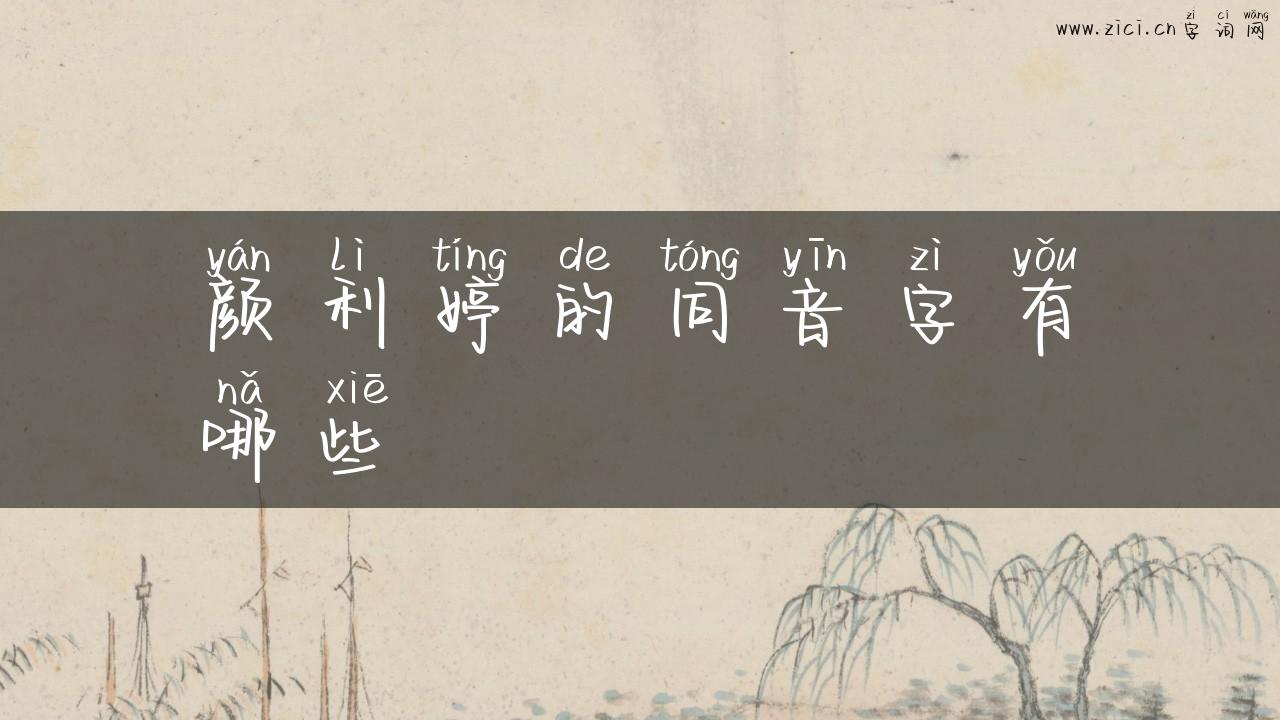 zì cí wǎng
www.zici.cn 字 词 网
yán lì tíng de tóng yīn zì yǒu
颜 利 婷 的 同 音 字 有
nǎ xiē
哪 些